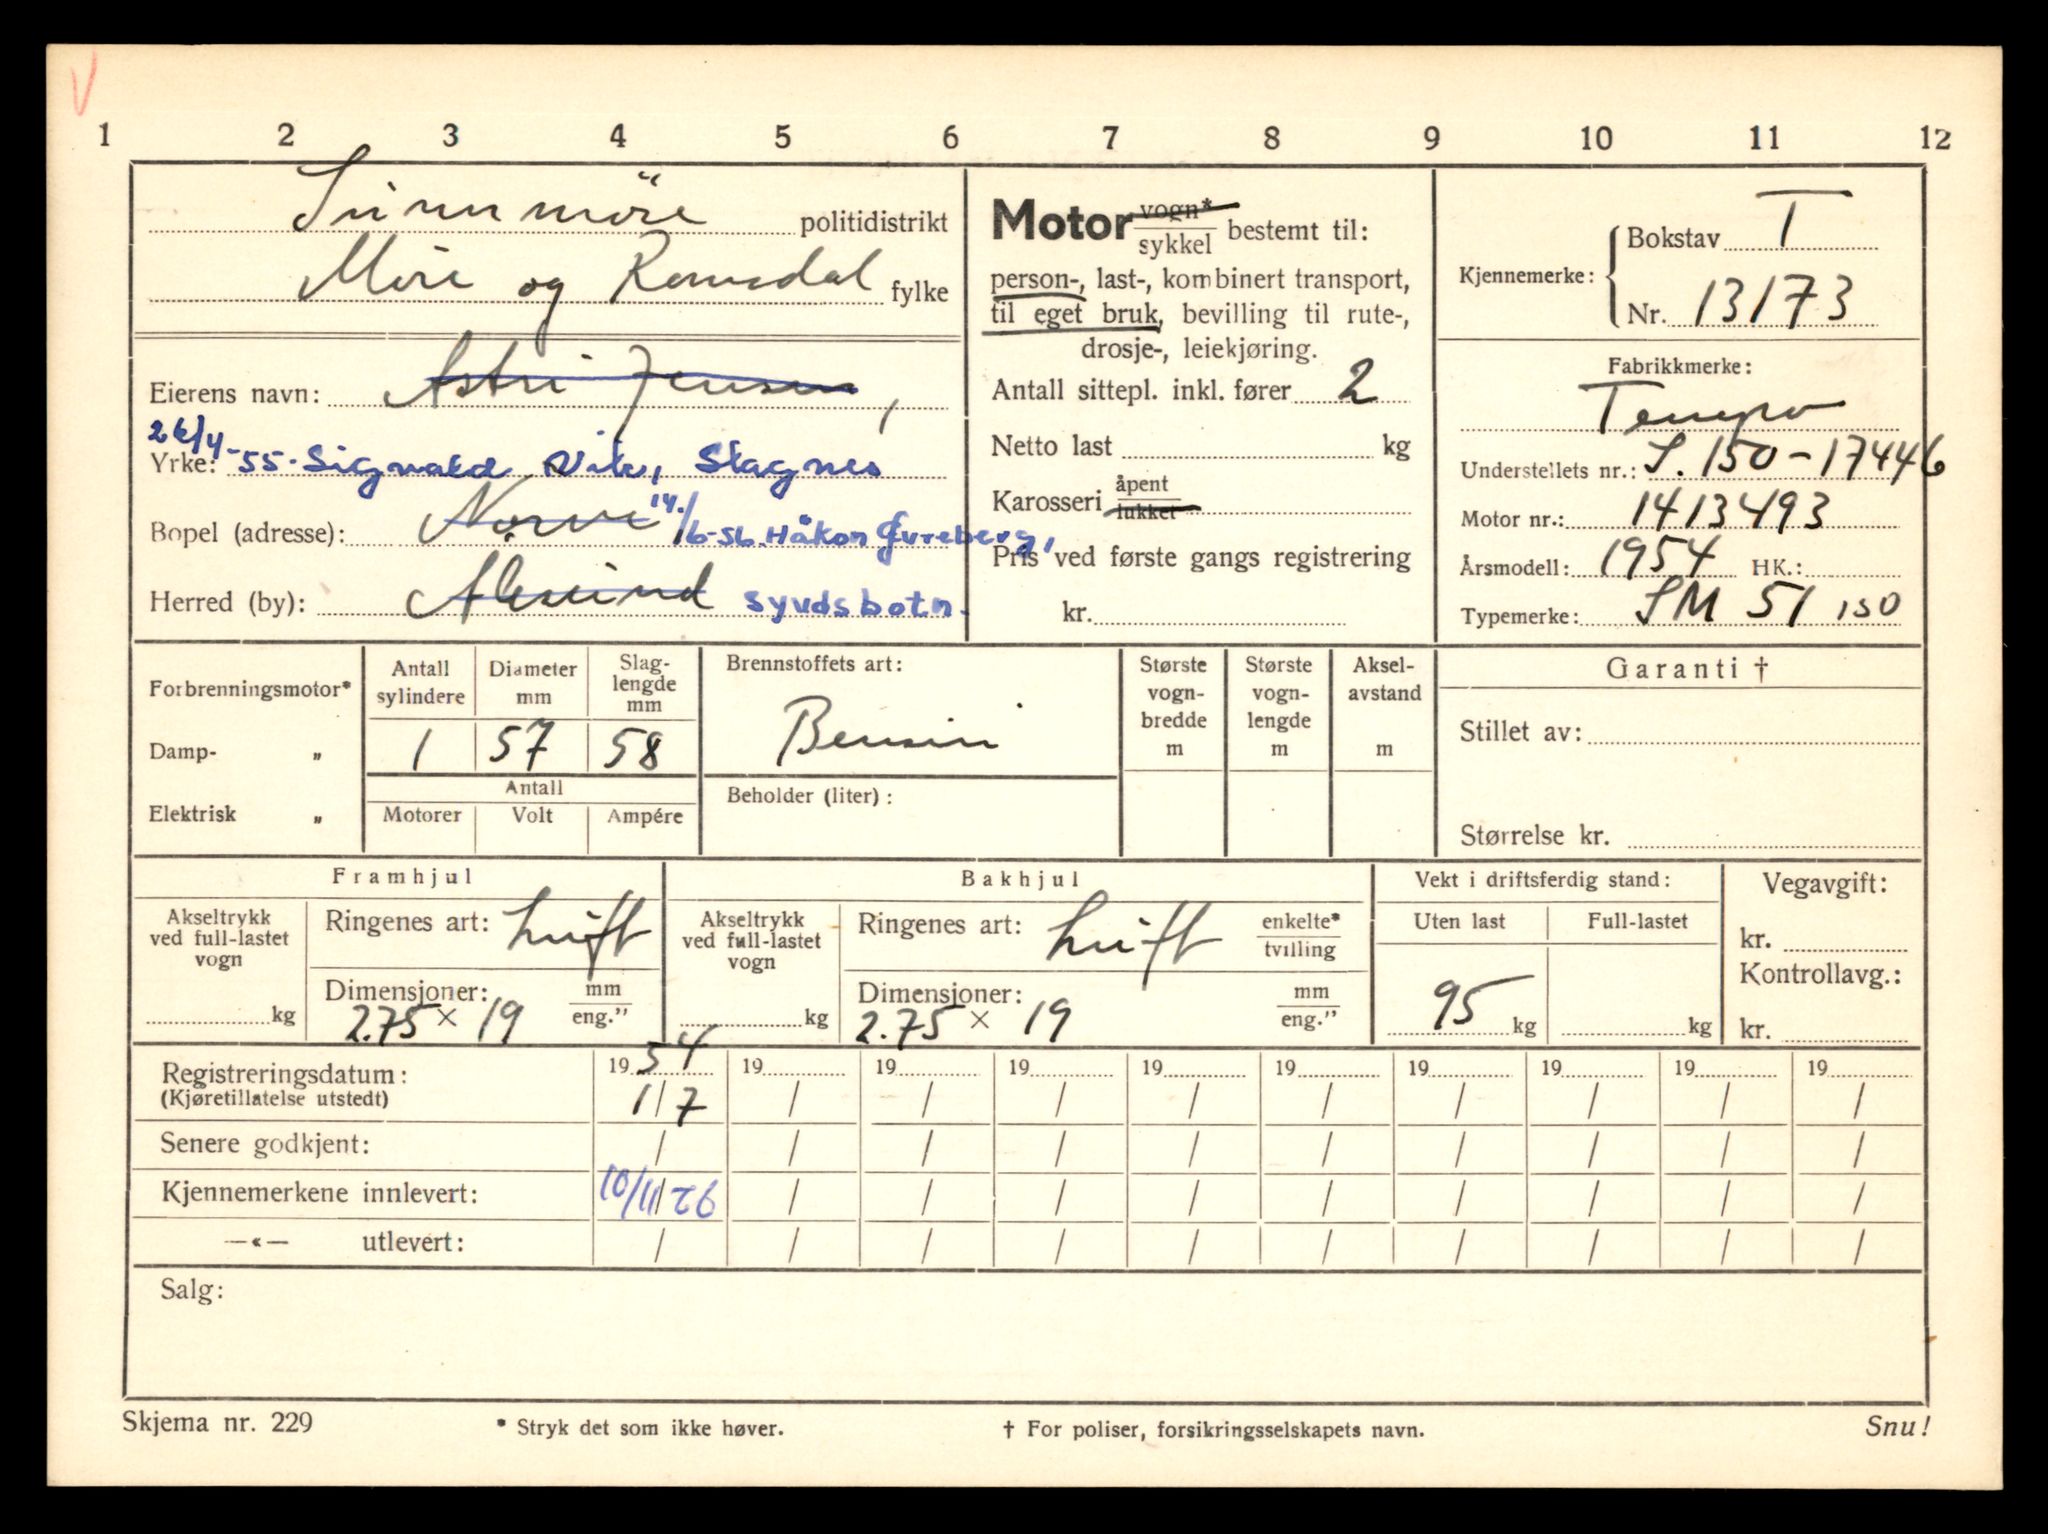 V
1 2 3 4 5 6 7 8 9 10 11 12
Sunnmöre politidistrikt
Möre og Romsdal fylke
Eierens navn: Astri Jensen,
26/4-55. Sigvald Vik, Slagnes
Yrke:
Bopel (adresse): Nørve 14./6-56. Håkon Øvreberg,
Herred (by): Ålesund syvdsbotn.
Motor vogn*/sykkel bestemt til:
person-, last-, kombinert transport,
til eget bruk, bevilling til rute-,
drosje-, leiekjøring.
Antall sittepl. inkl. fører 2
Netto last kg
Karosseri åpent/lukket
Pris ved første gangs registrering
kr.
Kjennemerke: Bokstav T
Nr. 13173
Fabrikkmerke:
Tempo
Understellets nr.: S. 150-17446
Motor nr.: 1413493
Årsmodell: 1954 HK.:
Typemerke: SM 51 150
Forbrenningsmotor*
Damp- „
Elektrisk „
Antall sylindere
Diameter mm
Slag-lengde mm
1 57 58
Antall
Motorer Volt Ampére
Brennstoffets art:
Bensin
Beholder (liter):
Største vogn-bredde m
Største vogn-lengde m
Aksel-avstand m
Garanti †
Stillet av:
Størrelse kr.
Framhjul
Akseltrykk ved full-lastet vogn
kg
Ringenes art: Luft
Dimensjoner: mm/eng."
2.75 × 19
Bakhjul
Akseltrykk ved full-lastet vogn
kg
Ringenes art: Luft enkelte*/tvilling
Dimensjoner: mm/eng."
2.75 × 19
Vekt i driftsferdig stand:
Uten last Full-lastet
95 kg kg
Vegavgift:
kr.
Kontrollavg.:
kr.
Registreringsdatum: 1954 19 19 19 19 19 19 19 19 19
(Kjøretillatelse utstedt) 1/7 / / / / / / / / /
Senere godkjent: / / / / / / / / / /
Kjennemerkene innlevert: 10/11 / / / / / / / / /
—«— utlevert: / / / / / / / / / /
Salg:
Skjema nr. 229 * Stryk det som ikke høver. † For poliser, forsikringsselskapets navn. Snu!